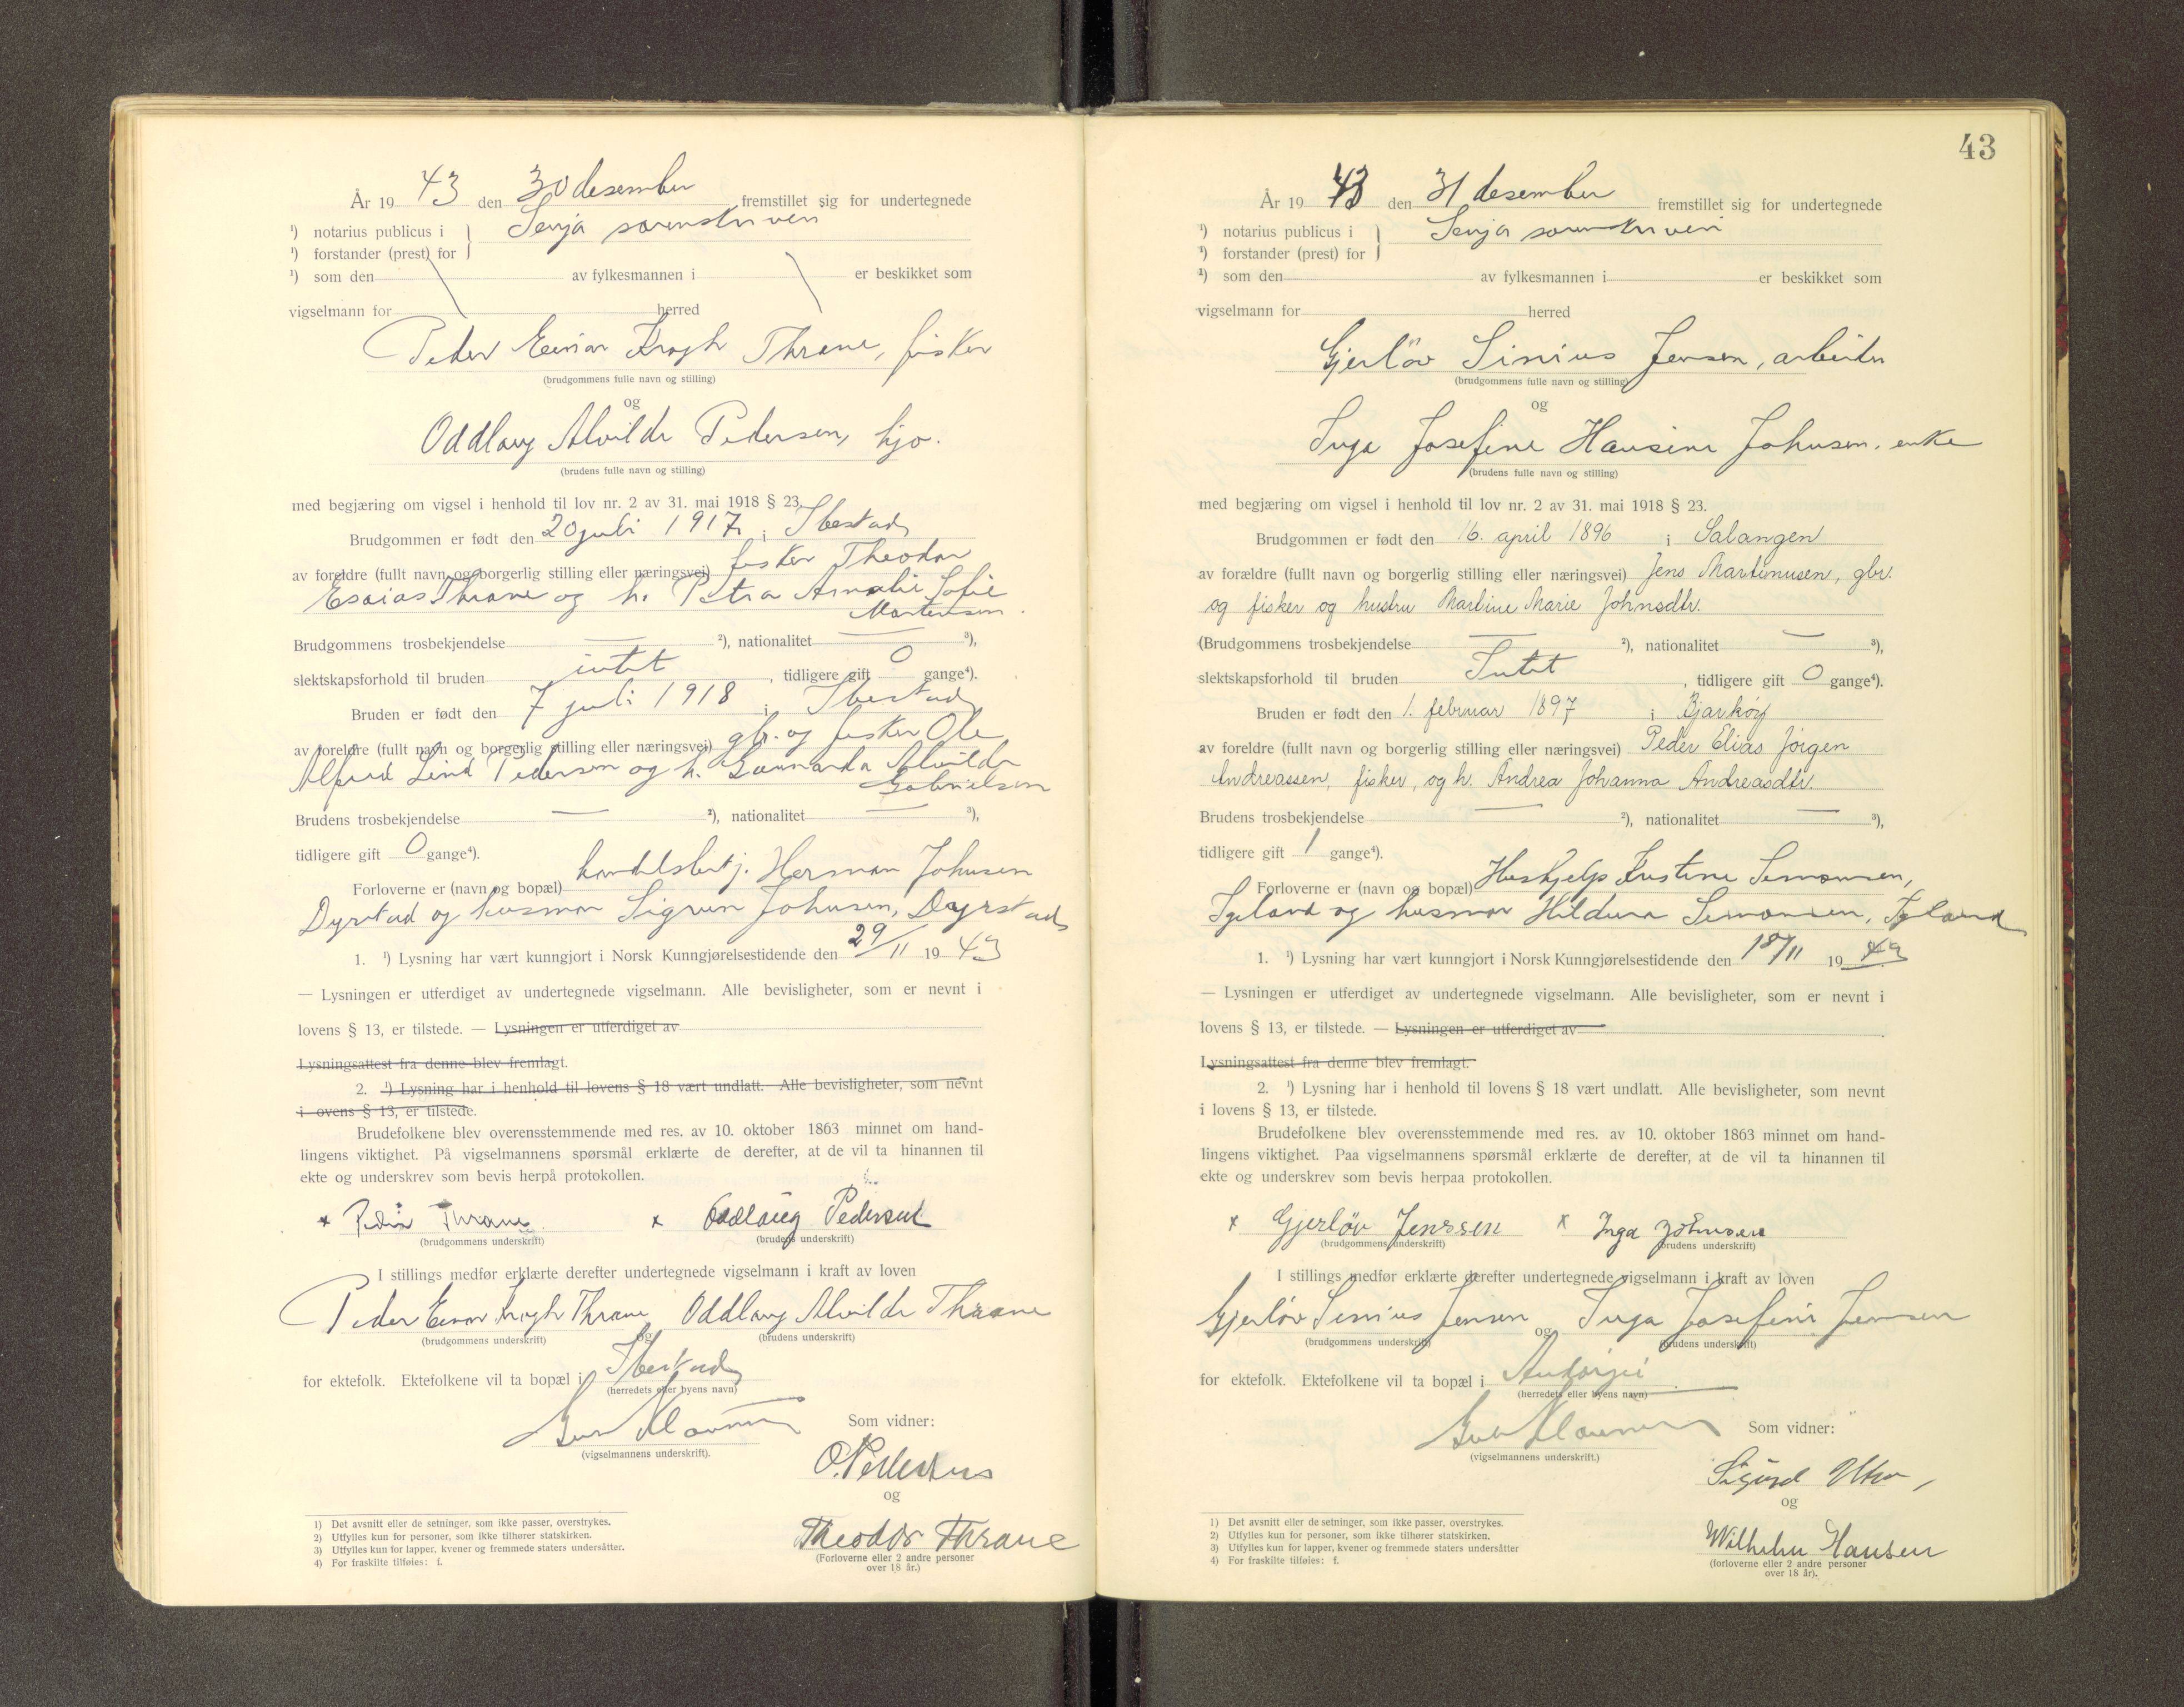 År 19 43 den 30 desember fremstillet sig for undertegnede
¹) notarius publicus i } Senja sorenskriveri
¹) forstander (prest) for
¹) som den av fylkesmannen i er beskikket som
vigselmann for herred
Peder Einar Krogh Thrane, fisker
(brudgommens fulle navn og stilling)
og
Oddlaug Alvilde Pedersen, hjv.
(brudens fulle navn og stilling)
med begjæring om vigsel i henhold til lov nr. 2 av 31. mai 1918 § 23.
Brudgommen er født den 20 juli 1917 i Ibestad
av foreldre (fullt navn og borgerlig stilling eller næringsvei) fisker Theodor
Esaias Thrane og h. Petra Amalie Sofie
Martensen.
Brudgommens trosbekjendelse — ²), nationalitet — ³),
slektskapsforhold til bruden intet, tidligere gift 0 gange⁴).
Bruden er født den 7 juli 1918 i Ibestad
av foreldre (fullt navn og borgerlig stilling eller næringsvei) gbr. og fisker Ole
Alfred Lind Pedersen og h. Alvilde
Gabrielsen
Brudens trosbekjendelse — ²), nationalitet — ³),
tidligere gift 0 gange⁴).
Forloverne er (navn og bopæl) handelsbetj. Herman Johnsen
Dyrstad og husmor Sigrun Johnsen, Dyrstad
1. ¹) Lysning har vært kunngjort i Norsk Kunngjørelsestidende den 29/11 19 43
— Lysningen er utferdiget av undertegnede vigselmann. Alle bevisligheter, som er nevnt i
lovens § 13, er tilstede. — Lysningen er utferdiget av
Lysningsattest fra denne blev fremlagt.
2. ¹) Lysning har i henhold til lovens § 18 vært undlatt. Alle bevisligheter, som nevnt
i ovens § 13, er tilstede.
Brudefolkene blev overensstemmende med res. av 10. oktober 1863 minnet om hand-
lingens viktighet. På vigselmannens spørsmål erklærte de derefter, at de vil ta hinannen til
ekte og underskrev som bevis herpå protokollen.
x Peder Thrane x Oddlaug Pedersen
(brudgommens underskrift) (brudens underskrift)
I stillings medfør erklærte derefter undertegnede vigselmann i kraft av loven
Peder Einar Krogh Thrane og Oddlaug Alvilde Thrane
(brudgommens underskrift) (brudens underskrift)
for ektefolk. Ektefolkene vil ta bopæl i Ibestad
(herredets eller byens navn)
(vigselmannens underskrift).
Som vidner:
O. Pedersen
og
Theodor Thrane
(Forloverne eller 2 andre personer
over 18 år.)
1) Det avsnitt eller de setninger, som ikke passer, overstrykes.
2) Utfylles kun for personer, som ikke tilhører statskirken.
3) Utfylles kun for lapper, kvener og fremmede staters undersåtter.
4) For fraskilte tilføies: f.
43
År 19 43 den 31 desember fremstillet sig for undertegnede
¹) notarius publicus i } Senja sorenskriveri
¹) forstander (prest) for
¹) som den av fylkesmannen i er beskikket som
vigselmann for herred
Gjerløv Sinius Jensen, arbeider
(brudgommens fulle navn og stilling)
og
Inga Josefine Hansine Johnsen, enke
(brudens fulle navn og stilling)
med begjæring om vigsel i henhold til lov nr. 2 av 31. mai 1918 § 23.
Brudgommen er født den 16. april 1896 i Salangen
av forældre (fullt navn og borgerlig stilling eller næringsvei) Jens Martinusen, gbr.
og fisker og hustru Martine Marie Johnsdtr.
(Brudgommens trosbekjendelse — ²), nationalitet — ³),
slektskapsforhold til bruden Intet, tidligere gift 0 gange⁴).
Bruden er født den 1. februar 1897 i Bjarkøy
av foreldre (fullt navn og borgerlig stilling eller næringsvei) Peder Elias Jørgen
Andreassen, fisker, og h. Andrea Johanna Andreasdtr.
Brudens trosbekjendelse — ²), nationalitet — ³),
tidligere gift 1 gange⁴).
Forloverne er (navn og bopæl) Hushjelp Kristine Simonsen,
Igeland og husmor Simonsen, Igeland
1. ¹) Lysning har vært kunngjort i Norsk Kunngjørelsestidende den 18/11 19 43
— Lysningen er utferdiget av undertegnede vigselmann. Alle bevisligheter, som er nevnt i
lovens § 13, er tilstede. — Lysningen er utferdiget av
Lysningsattest fra denne blev fremlagt.
2. ¹) Lysning har i henhold til lovens § 18 vært undlatt. Alle bevisligheter, som nevnt
i lovens § 13, er tilstede.
Brudefolkene blev overensstemmende med res. av 10. oktober 1863 minnet om hand-
lingens viktighet. Paa vigselmannens spørsmål erklærte de derefter, at de vil ta hinannen til
ekte og underskrev som bevis herpaa protokollen.
x Gjerløv Jenssen x Inga Johnsen
(brudgommens underskrift) (brudens underskrift)
I stillings medfør erklærte derefter undertegnede vigselmann i kraft av loven
Gjerløv Sinius Jensen og Inga Josefine Jensen
(brudgommens underskrift) (brudens underskrift)
for ektefolk. Ektefolkene vil ta bopæl i Andørja
(herredets eller byens navn)
(vigselmannens underskrift.)
Som vidner:
Sigurd
og
Wilhelm Hansen
(forloverne eller 2 andre personer
over 18 år).
1) Det avsnitt eller de setninger, som ikke passer, overstrykes.
2) Utfylles kun for personer, som ikke tilhører statskirken.
3) Utfylles kun for lapper, kvener og fremmede staters undersåtter
4) For fraskilte tilføies: f.